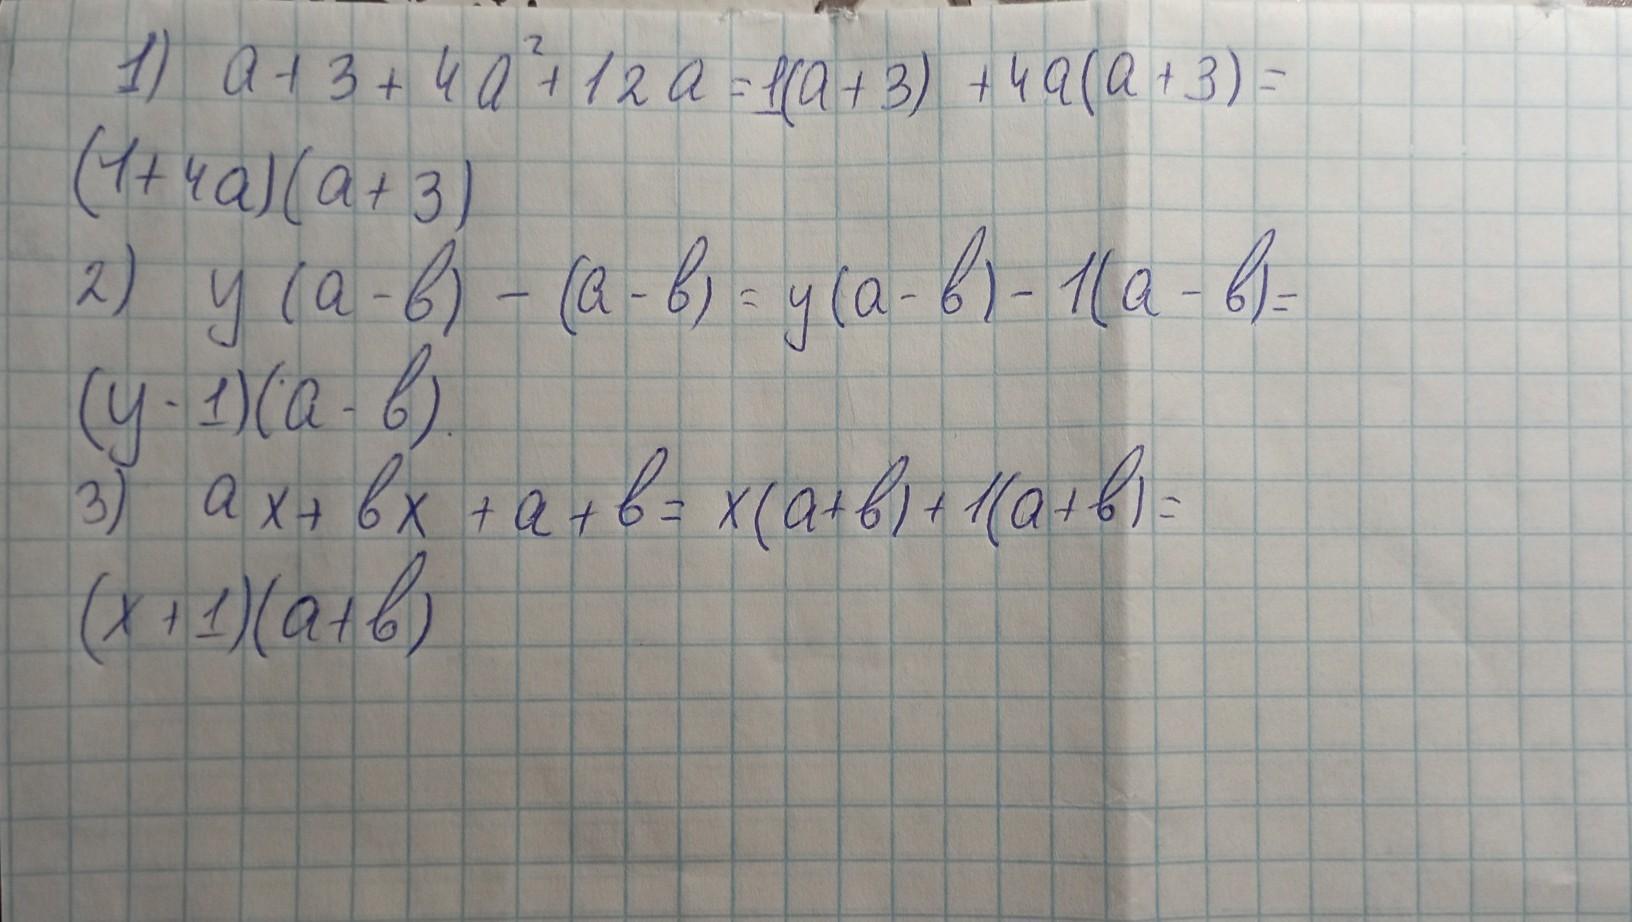 1) a + 3 + 4a² + 12a = 1(a + 3) + 4a(a + 3) =
(1 + 4a)(a + 3)
2) y (a - b) - (a - b) = y(a - b) - 1(a - b) =
(y - 1)(a - b).
3) ax + bx + a + b = x(a + b) + 1(a + b) =
(x + 1)(a + b)